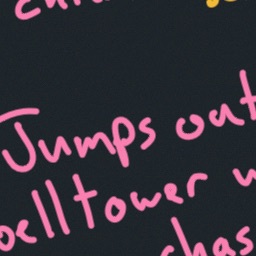 Jumps out
belltower w
has